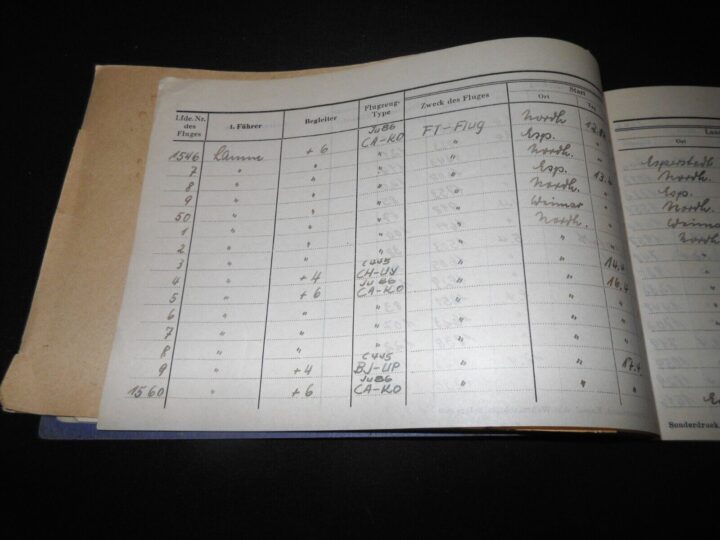 Lfde. Nr. des Fluges 1. Führer Begleiter Flugzeug-Type Zweck des Fluges Start Ort Tag
1546 + 6 Ju 86 CA-KO FT-Flug Nordh.
7 " " " " Esp. "
8 " " " " Nordh.
9 " " " " Esp. 13.4
50 " " " " Nordh.
1 " " " " Weimar
2 " " " " Nordh.
3 " " " " "
4 " + 4 C 445 CH-UY " " 14.4
5 " + 6 Ju 86 CA-KO " " 16.4
6 " " " " "
7 " " " " "
8 " " " " "
9 " + 4 C 445 BJ-UP " " 17.4
1560 " + 6 Ju 86 CA-KO " " "
Ort
Esperstedt
Nordh.
Esp.
Nordh.
Weimar
Nordh.
Sonderdruck